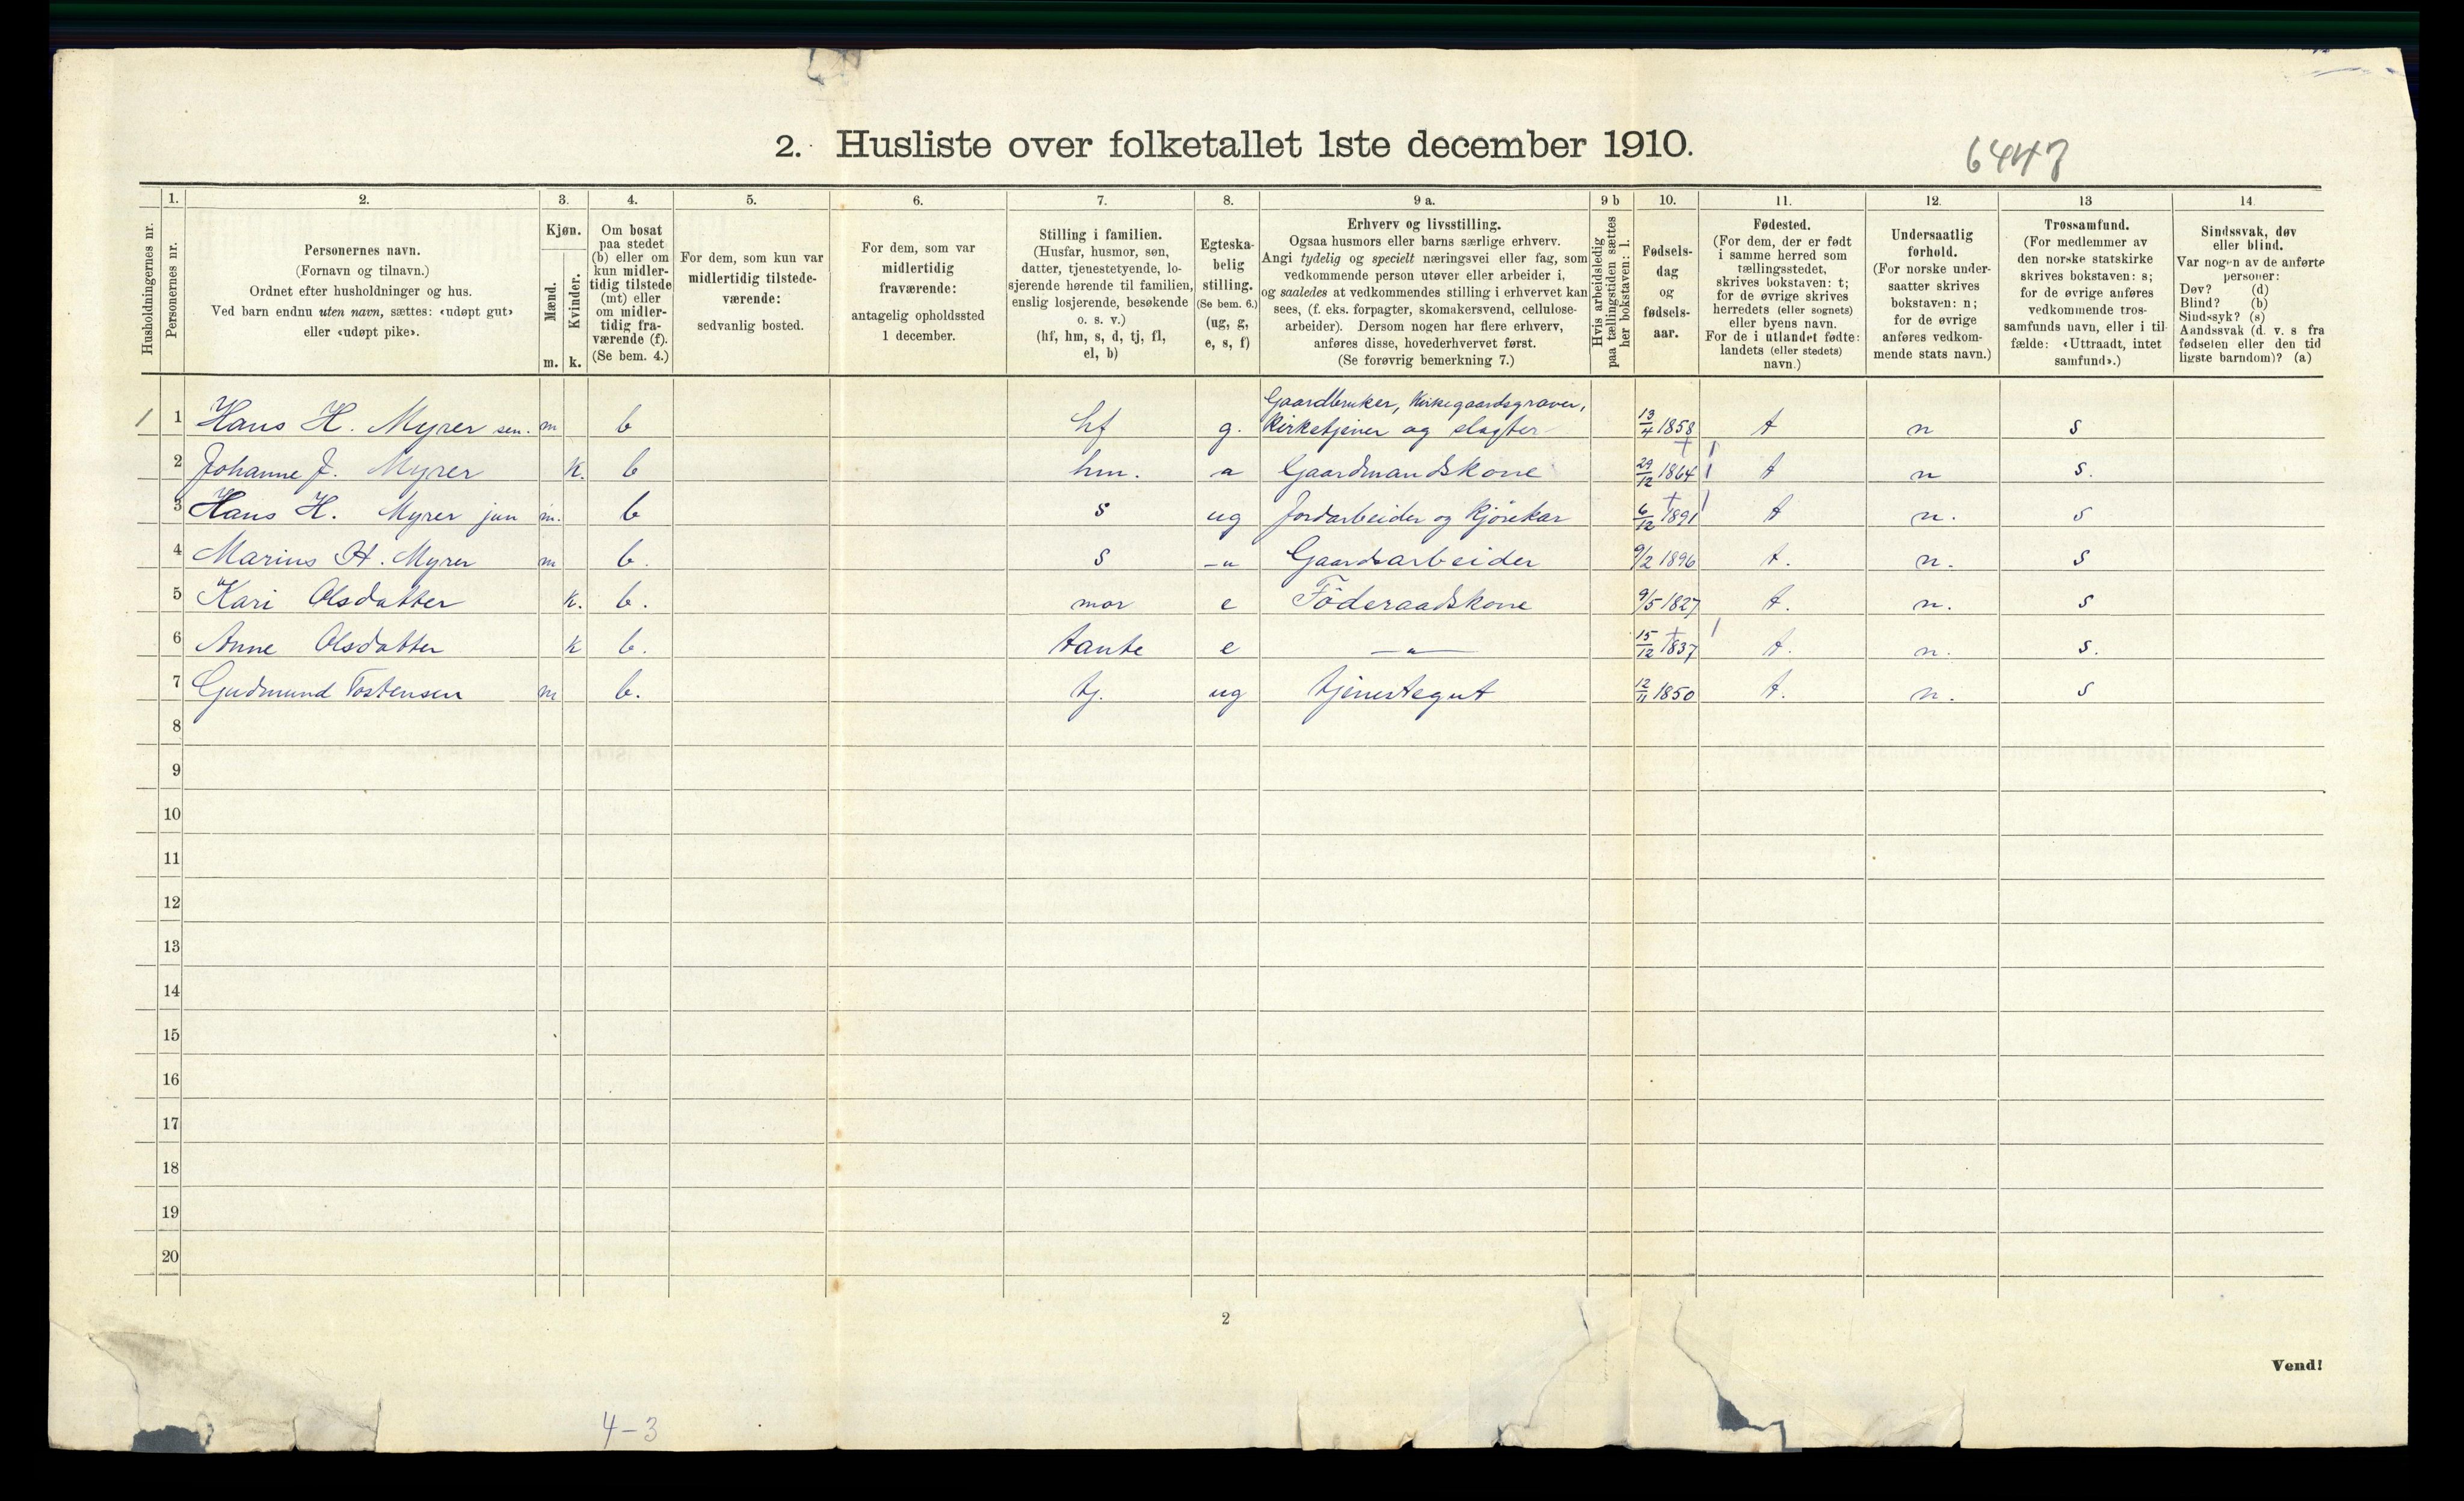 2. Husliste over folketallet 1ste december 1910.
6447
Husholdningernes nr.
1.
Personernes nr.
2.
Personernes navn.
(Fornavn og tilnavn.)
Ordnet efter husholdninger og hus.
Ved barn endnu uten navn, sættes: «udøpt gut»
eller «udøpt pike».
3.
Kjøn.
Mænd.
Kvinder.
m. k.
4.
Om bosat
paa stedet
(b) eller om
kun midler-
tidig tilstede
(mt) eller
om midler-
tidig fra-
værende (f).
(Se bem. 4.)
5.
For dem, som kun var
midlertidig tilstede-
værende:
sedvanlig bosted.
6.
For dem, som var
midlertidig
fraværende:
antagelig opholdssted
1 december.
7.
Stilling i familien.
(Husfar, husmor, søn,
datter, tjenestetyende, lo-
sjerende hørende til familien,
enslig losjerende, besøkende
o. s. v.)
(hf, hm, s, d, tj, fl,
el, b)
8.
Egteska-
belig
stilling.
(Se bem. 6.)
(ug, g,
e, s, f)
9 a.
Erhverv og livsstilling.
Ogsaa husmors eller barns særlige erhverv.
Angi tydelig og specielt næringsvei eller fag, som
vedkommende person utøver eller arbeider i,
og saaledes at vedkommendes stilling i erhvervet kan
sees, (f. eks. forpagter, skomakersvend, cellulose-
arbeider). Dersom nogen har flere erhverv,
anføres disse, hovederhvervet først.
(Se forøvrig bemerkning 7.)
9 b
Hvis arbeidsledig
paa tællingstiden sættes
her bokstaven: l.
10.
Fødsels-
dag
og
fødsels-
aar.
11.
Fødested.
(For dem, der er født
i samme herred som
tællingsstedet,
skrives bokstaven: t;
for de øvrige skrives
herredets (eller sognets)
eller byens navn.
For de i utlandet fødte:
landets (eller stedets)
navn.)
12.
Undersaatlig
forhold.
(For norske under-
saatter skrives
bokstaven: n;
for de øvrige
anføres vedkom-
mende stats navn.)
13
Trossamfund.
(For medlemmer av
den norske statskirke
skrives bokstaven: s;
for de øvrige anføres
vedkommende tros-
samfunds navn, eller i til
fælde: «Uttraadt, intet
samfund».)
14
Sindssvak, døv
eller blind.
Var nogen av de anførte
personer:
Døv? (d)
Blind? (b)
Sindssyk? (s)
Aandssvak (d. v. s fra
fødselen eller den tid
ligste barndom)? (a)
Gaardbruker, Kirkegaardsgraver,
1 1 Hans H. Myrer sen. m b hf g. Kirketjener og slagter 13/4 1858 t n s
2 Johanne J. Myrer k. b hm. " Gaardmandskone 29/12 1864 t n s.
3 Hans H. Myrer jun m. b s ug Jordarbeider og Kjørekar 6/12 1891 t n. s
4 Marius H. Myrer m b. s -"- Gaardsarbeider 9/2 1896 t. n. s
5 Kari Olsdatter k. b. mor e Föderaadskone 9/5 1827 t. n. s
6 Anne Olsdatter k b. tante e -"- 15/12 1837 t. n. s.
7 Gudmund Tostensen m b. tj. ug tjenestegut 12/11 1850 t. n. s
8
9
10
11
12
13
14
15
16
17
18
19
20
2
Vend!
4-3